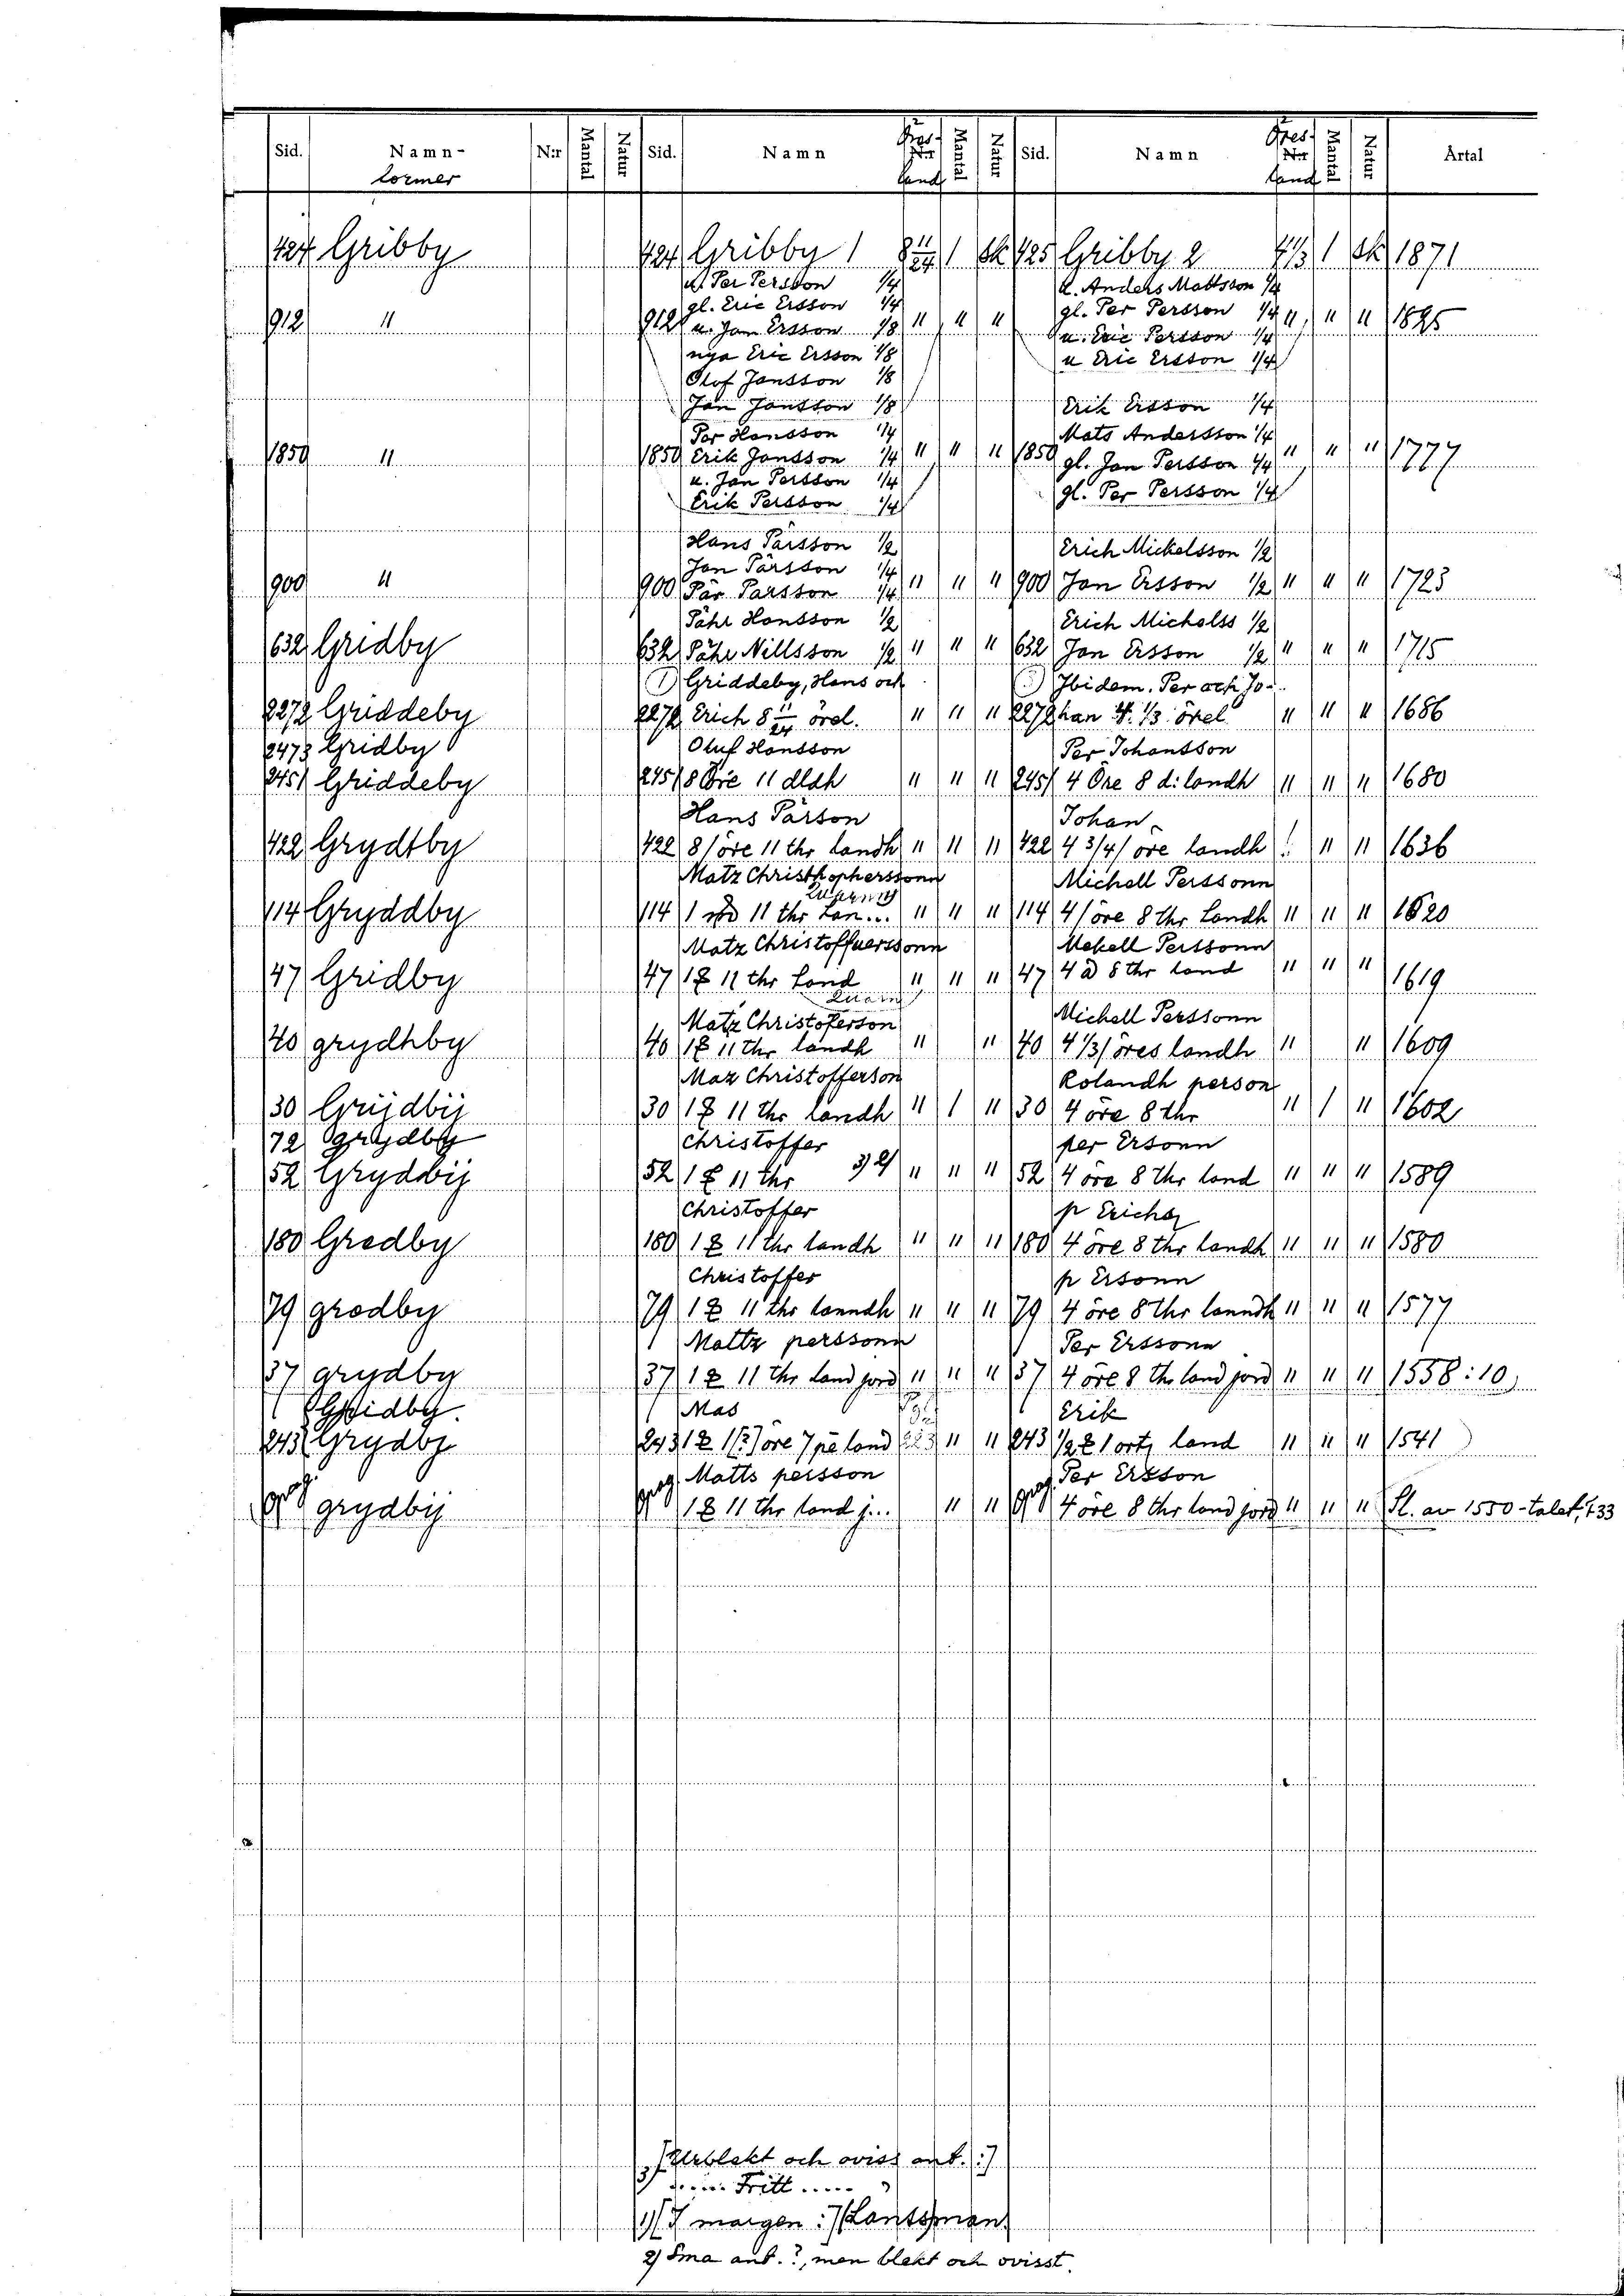 Sid. Namn- N:r Mantal Natur Sid. Namn Öres- N:r land Mantal Natur Sid. Namn Öres- N:r land Mantal Natur Årtal
former
424 Gribby 424 Gribby 1 8 11/24 1 sk 425 Gribby 2 4 1/3 1 sk 1871
u. Per Persson 1/4 u. Anders Mattsson 1/4
gl. Eric Ersson 1/4 gl. Per Persson 1/4
912 " 912 u. Jan Ersson 1/8 " " " u. Eric Persson 1/4 " " " 1825
nya Eric Ersson 1/8 u Eric Ersson 1/4
Olof Jansson 1/8
Jan Jansson 1/8 Erik Ersson 1/4
Per Hansson 1/4 Mats Andersson 1/4
1859 " 1859 Erik Jansson 1/4 " " " 1859 gl. Jan Persson 1/4 " " " 1777
u. Jan Persson 1/4 gl. Per Persson 1/4
Erik Persson 1/4
Hans Pärsson 1/2 Erich Mickelsson 1/2
Jan Pärsson 1/4
900 " 900 Pär Parsson 1/4 " " " 900 Jan Ersson 1/2 " " " 1723
Pähr Hansson 1/2 Erich Michelss 1/2
632 Gridby 632 Pähr Nillsson 1/2 " " " 632 Jan Ersson 1/2 " " " 1715
1) Griddeby, Hans och Ibidem. Per och Jo-
2272 Griddeby 2272 Erich 8 11/24 örel. " " " 2272 han 4. 1/3 örel " " " 1686
2473 Gridby Oluf Hansson Per Johansson
2451 Griddeby 2451 8 Öre 11 dlah " " " 2451 4 Öre 8 d: landh " " " 1680
Hans Pärson Johan
422 Grydtby 422 8/öre 11 thr landh " " " 422 4 3/4/ öre landh ! " " 1636
Matz Christhophersonn Michell Perssonn
114 Gryddby 114 1 11 thr Lan... " " " 114 4/öre 8 Thr Landh " " " 1620
Matz Christoffuerssonn Mekell Perssonn
47 Gridby 47 1 11 thr Land " " " 47 4 8 thr land " " " 1619
Matz Christoferson Michell Perssonn
40 grydhby 40 1 11 Thr landh " " 40 4 1/3/ öres landh " " 1609
Maz Christofferson Rolandh person
30 Grijdbij 30 1 11 Thr landh " 1 " 30 4 öre 8 thr " 1 " 1602
72 grydby Christoffer per Ersonn
52 Grydbij 52 1 11 thr " " " 52 4 öre 8 Thr land " " " 1589
Christoffer p Erichs
180 Gredby 180 1 11 thr landh " " " 180 4 öre 8 thr landh " " " 1580
Christoffer p Ersonn
79 gredby 79 1 11 thr lanndh " " " 79 4 öre 8 Thr lanndh " " " 1577
Mattz perssonn Per Erssonn
37 grydby 37 1 11 Thr land jord " " " 37 4 öre 8 Thr land jord " " " 1558:10
Gridby. Mas Erik
243 Grydby 243 1 öre 7 pe land " " 243 1/2 1 ort land " " " 1541
Matts persson Per Ersson
grydbij 1 11 Thr land j... " " 4 öre 8 Thr land jord " " " Sl. av 1550-talet, 133
[Urblekt och oviss ant.:]
3) ...... Fritt .....
1) [I margen:] Lantsman
2) Sma ant.?, men blekt och ovisst.